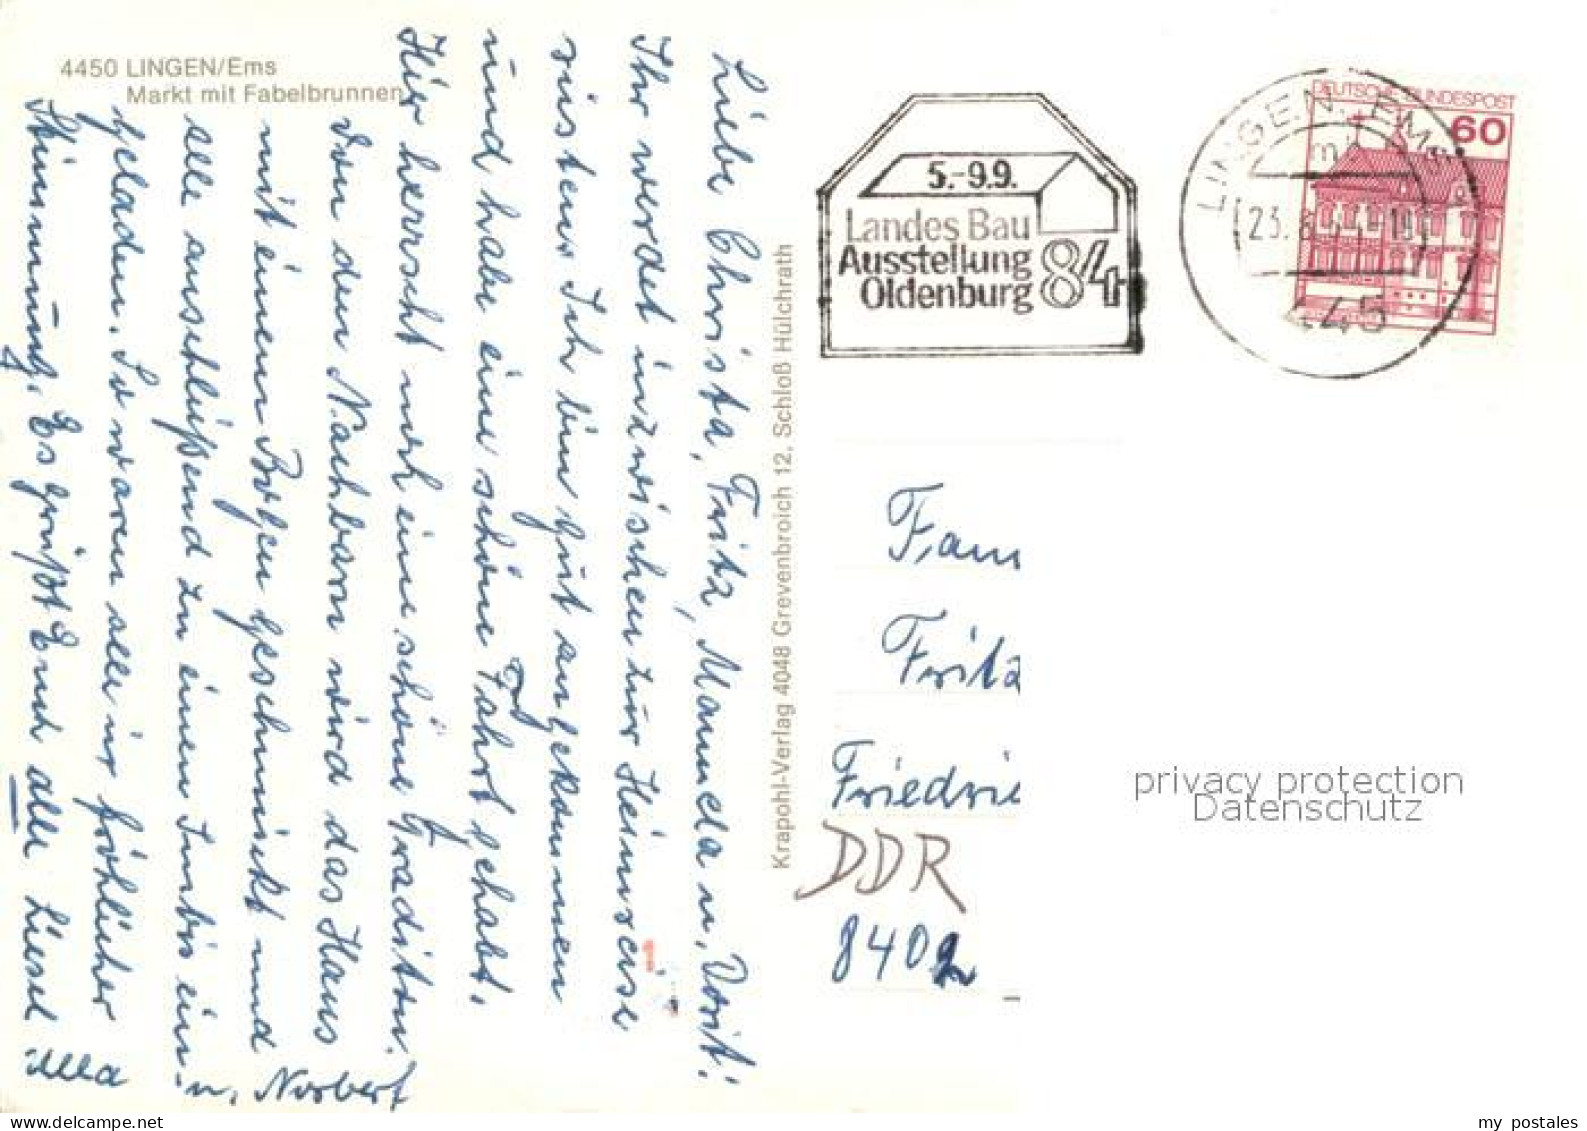 4450 LINGEN/Ems
Markt mit Fabelbrunnen
Liebe Christa, Fritz, Manuela u. Dorit!
Ihr werdet inzwischen zur Heimreise
rüsten. Ich bin gut angekommen
und habe eine schöne Fahrt gehabt.
Hier herrscht noch eine schöne Tradition.
Von den Nachbarn wird das Haus
mit einem Bogen geschmückt und
alle anschließend zu einem Imbis ein-
geladen. So waren alle in fröhlicher
Stimmung. Es grüßt Euch alle Liesel
Illa
u. Norbert
Krapohl-Verlag 4048 Grevenbroich 12, Schloß Hülchrath
5.-9.9.
Landes Bau
Ausstellung
Oldenburg 84
LINGEN, EMS
23. 6. 84-19
445
DEUTSCHE BUNDESPOST
60
Fam
Fritz
Friedri
DDR
8402
privacy protection
Datenschutz
my postales